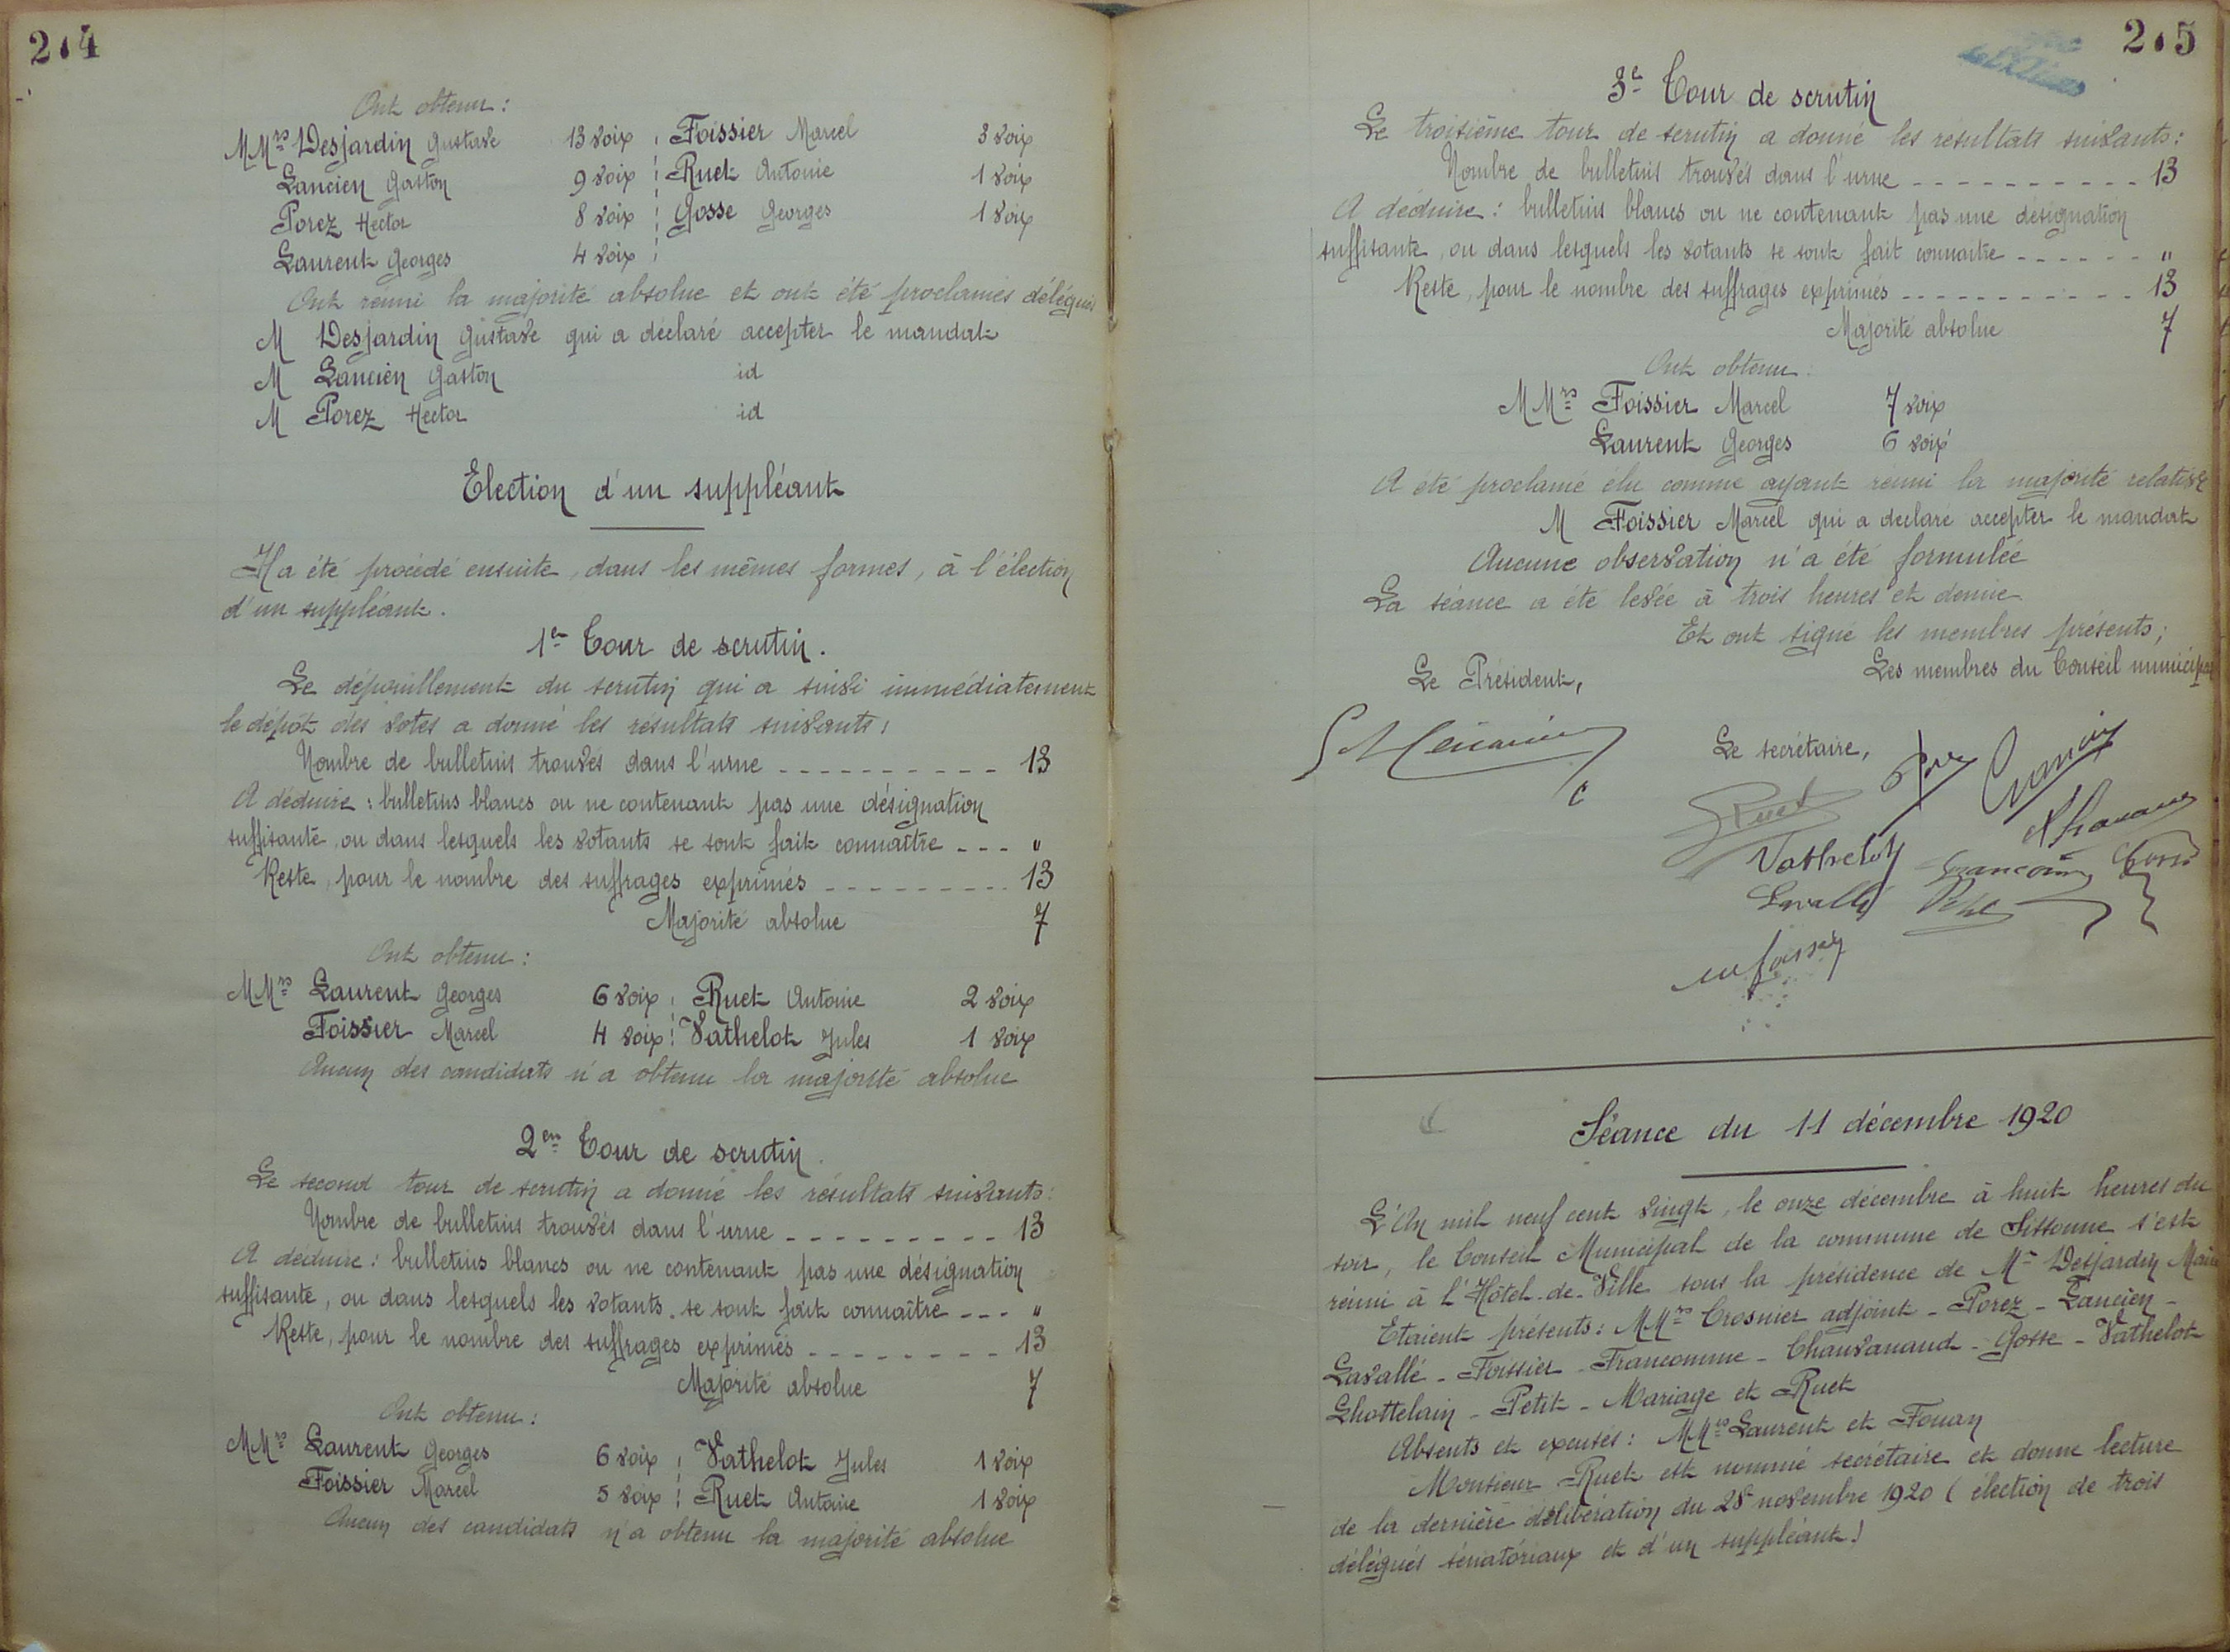 214
Ont obtenu :
MMrs Desjardin Gustave 13 voix Foissier Marcel 3 voix
Lancien Gaston 9 voix Ruet Antonie 1 voix
Porez Hector 8 voix Gosse Georges 1 voix
Laurent Georges 4 voix
Ont réuni la majorité absolue et ont été proclamés délégués
M Desjardin Gustave qui a déclaré accepter le mandat
M Lancien Gaston id
M Porez Hector id
Election d'un suppléant
Il a été procédé ensuite, dans les mêmes formes, à l'élection
d'un suppléant.
1er Tour de scrutin.
Le dépouillement du scrutin qui a suivi immédiatement
le dépôt des votes a donné les résultats suivants :
Nombre de bulletins trouvés dans l'urne ---------- 13
A déduire : bulletins blancs ou ne contenant pas une désignation
suffisante, ou dans lesquels les votants se sont fait connaître --- "
Reste, pour le nombre des suffrages exprimés --------- 13
Majorité absolue 7
Ont obtenu :
MMrs Laurent Georges 6 voix Ruet Antoine 2 voix
Foissier Marcel 4 voix Vathelot Jules 1 voix
Aucun des candidats n'a obtenu la majorité absolue
2em Tour de scrutin.
Le second tour de scrutin a donné les résultats suivants :
Nombre de bulletins trouvés dans l'urne --------- 13
A déduire : bulletins blancs ou ne contenant pas une désignation
suffisante, ou dans lesquels les votants se sont fait connaître --- "
Reste, pour le nombre des suffrages exprimés -------- 13
Majorité absolue 7
Ont obtenu :
MMrs Laurent Georges 6 voix Vathelot Jules 1 voix
Foissier Marcel 5 voix Ruet Antoine 1 voix
Aucun des candidats n'a obtenu la majorité absolue
215
3e Tour de scrutin
Le troisième tour de scrutin a donné les résultats suivants :
Nombre de bulletins trouvés dans l'urne ---------- 13
A déduire : bulletins blancs ou ne contenant pas une désignation
suffisante, ou dans lesquels les votants se sont fait connaître ------ "
Reste, pour le nombre des suffrages exprimés ----------- 13
Majorité absolue 7
Ont obtenu :
MMrs Foissier Marcel 7 voix
Laurent Georges 6 voix
A été proclamé élu comme ayant réuni la majorité relative
M Foissier Marcel qui a déclaré accepter le mandat
Aucune observation n'a été formulée
La séance a été levée à trois heures et demie
Et ont signé les membres présents ;
Le Président, Les membres du Conseil municipal
Le secrétaire,
Ruet
Vathelot Francomme Gosse
Lavallé Petit
Séance du 11 décembre 1920
L'An mil neuf cent vingt, le onze décembre à huit heures du
soir, le Conseil Municipal de la commune de Sissonne s'est
réuni à l'Hôtel-de-Ville sous la présidence de Mr Desjardin Maire
Etaient présents : MMrs Crosnier adjoint - Porez - Lancien -
Lavallé - Foissier - Francomme - Chauvanaud - Gosse - Vathelot
Lhottelain - Petit - Mariage et Ruet
Absents et excusés : MMrs Laurent et Fouan
Monsieur Ruet est nommé secrétaire et donne lecture
de la dernière délibération du 28 novembre 1920 (élection de trois
délégués sénatoriaux et d'un suppléant)